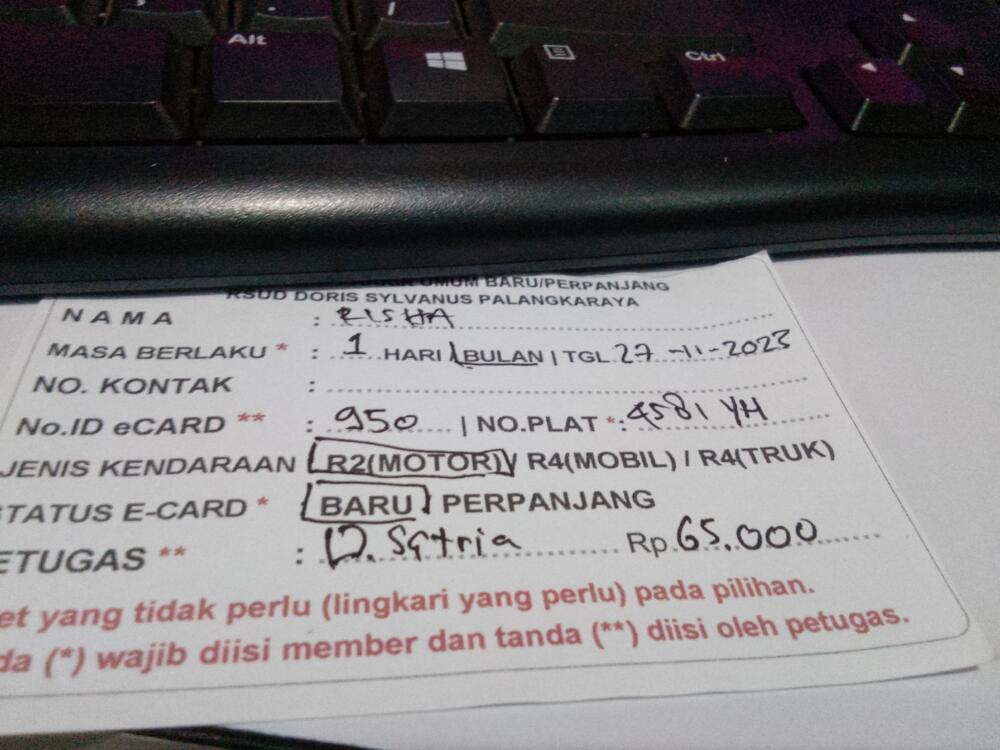 Alt
Ctrl
UMUM BARU/PERPANJANG
RSUD DORIS SYLVANUS PALANGKARAYA
NAMA : RISHA
MASA BERLAKU * : 1 HARI BULAN | TGL 27-11-2023
NO. KONTAK :
No.ID eCARD ** : 950 | NO.PLAT *: 4581 YH
JENIS KENDARAAN R2(MOTOR)/ R4(MOBIL) / R4(TRUK)
TATUS E-CARD * BARU PERPANJANG
ETUGAS ** : D. Satria Rp.65.000
et yang tidak perlu (lingkari yang perlu) pada pilihan.
da (*) wajib diisi member dan tanda (**) diisi oleh petugas.